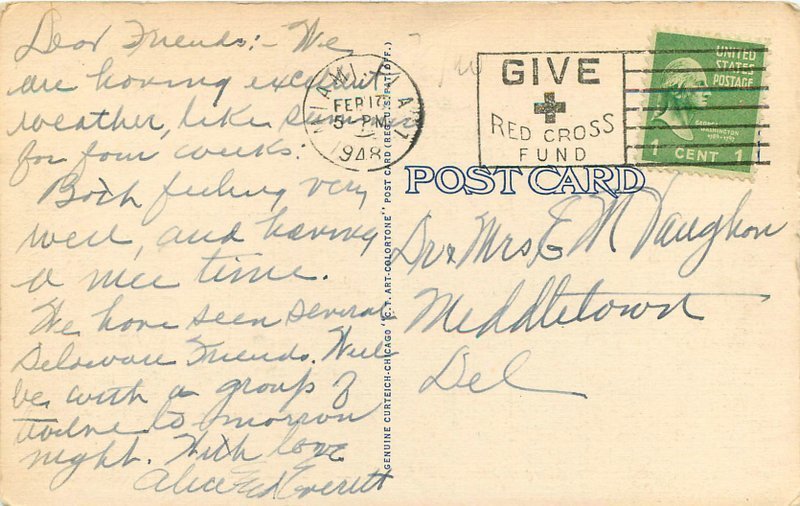 Dear Friends:- We
are having excellent
weather, like summer
for four weeks.
Both feeling very
well, and having
a nice time.
We have seen several
Delaware Friends. Will
be with a group of
twelve to morrow
night. With love
Alice Ed Everett
GENUINE CURTEICH-CHICAGO "C. T. ART-COLORTONE" POST CARD (REG. U. S. PAT. OFF.)
MIAMI, FLA.
FEB 17
5-PM
1948
GIVE
RED CROSS
FUND
UNITED
STATES
POSTAGE
GEORGE
WASHINGTON
1789-1797
1 CENT 1
POST CARD
Dr & Mrs E M Vaughon
Middletown
Del